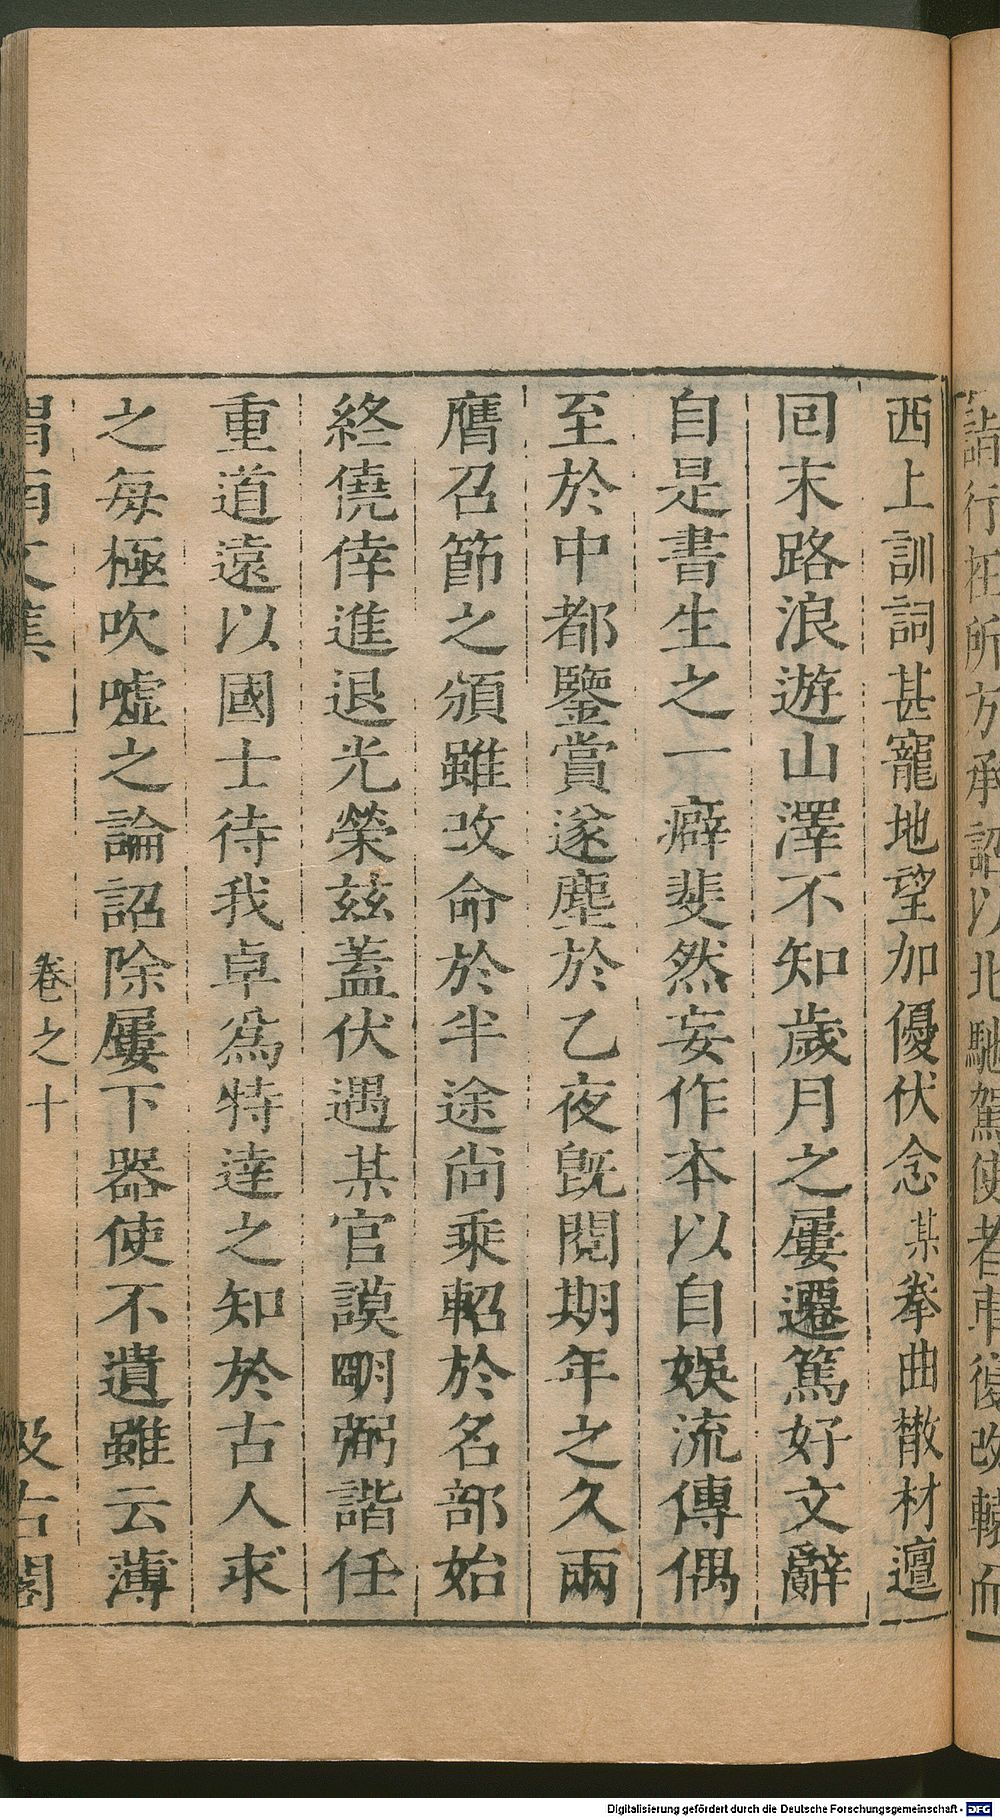 詣行在所方承詔以北馳駕使者車復改轅而
西上訓詞甚寵地望加優伏念某拳曲散材邅
回末路浪遊山澤不知歲月之屢遷篤好文辭
自是書生之一癖斐然妄作本以自娛流傳偶
至於中都鑒賞遂塵於乙夜既閱期年之久兩
膺召節之頒雖改命於半途尚乘軺於名部始
終僥倖進退光榮茲蓋伏遇某官謨明弼諧任
重道遠以國士待我卓為特達之知於古人求
之每極吹噓之論詔除屢下器使不遺雖云薄
渭南文集
卷之十
汲古閣
Digitalisierung gefördert durch die Deutsche Forschungsgemeinschaft - DFG